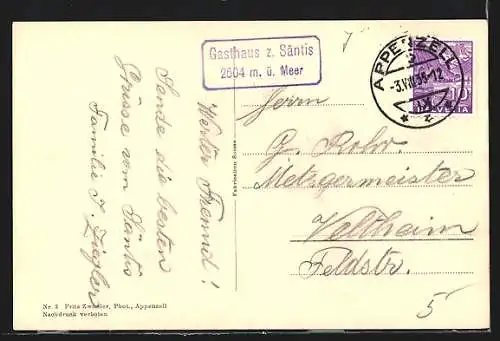 Gasthaus z. Säntis
2504 m. ü. Meer
APPENZELL
-3.VIII.35-12
10
HELVETIA
Werter Freund!
Sende die besten
Grüsse vom Säntis
Familie J. Ziegler
Herrn
G. Rohr
Metzgermeister
Veltheim
Feldstr.
5
Fabrication Suisse
Nr. 3 Fritz Zweifler, Phot., Appenzell
Nachdruck verboten